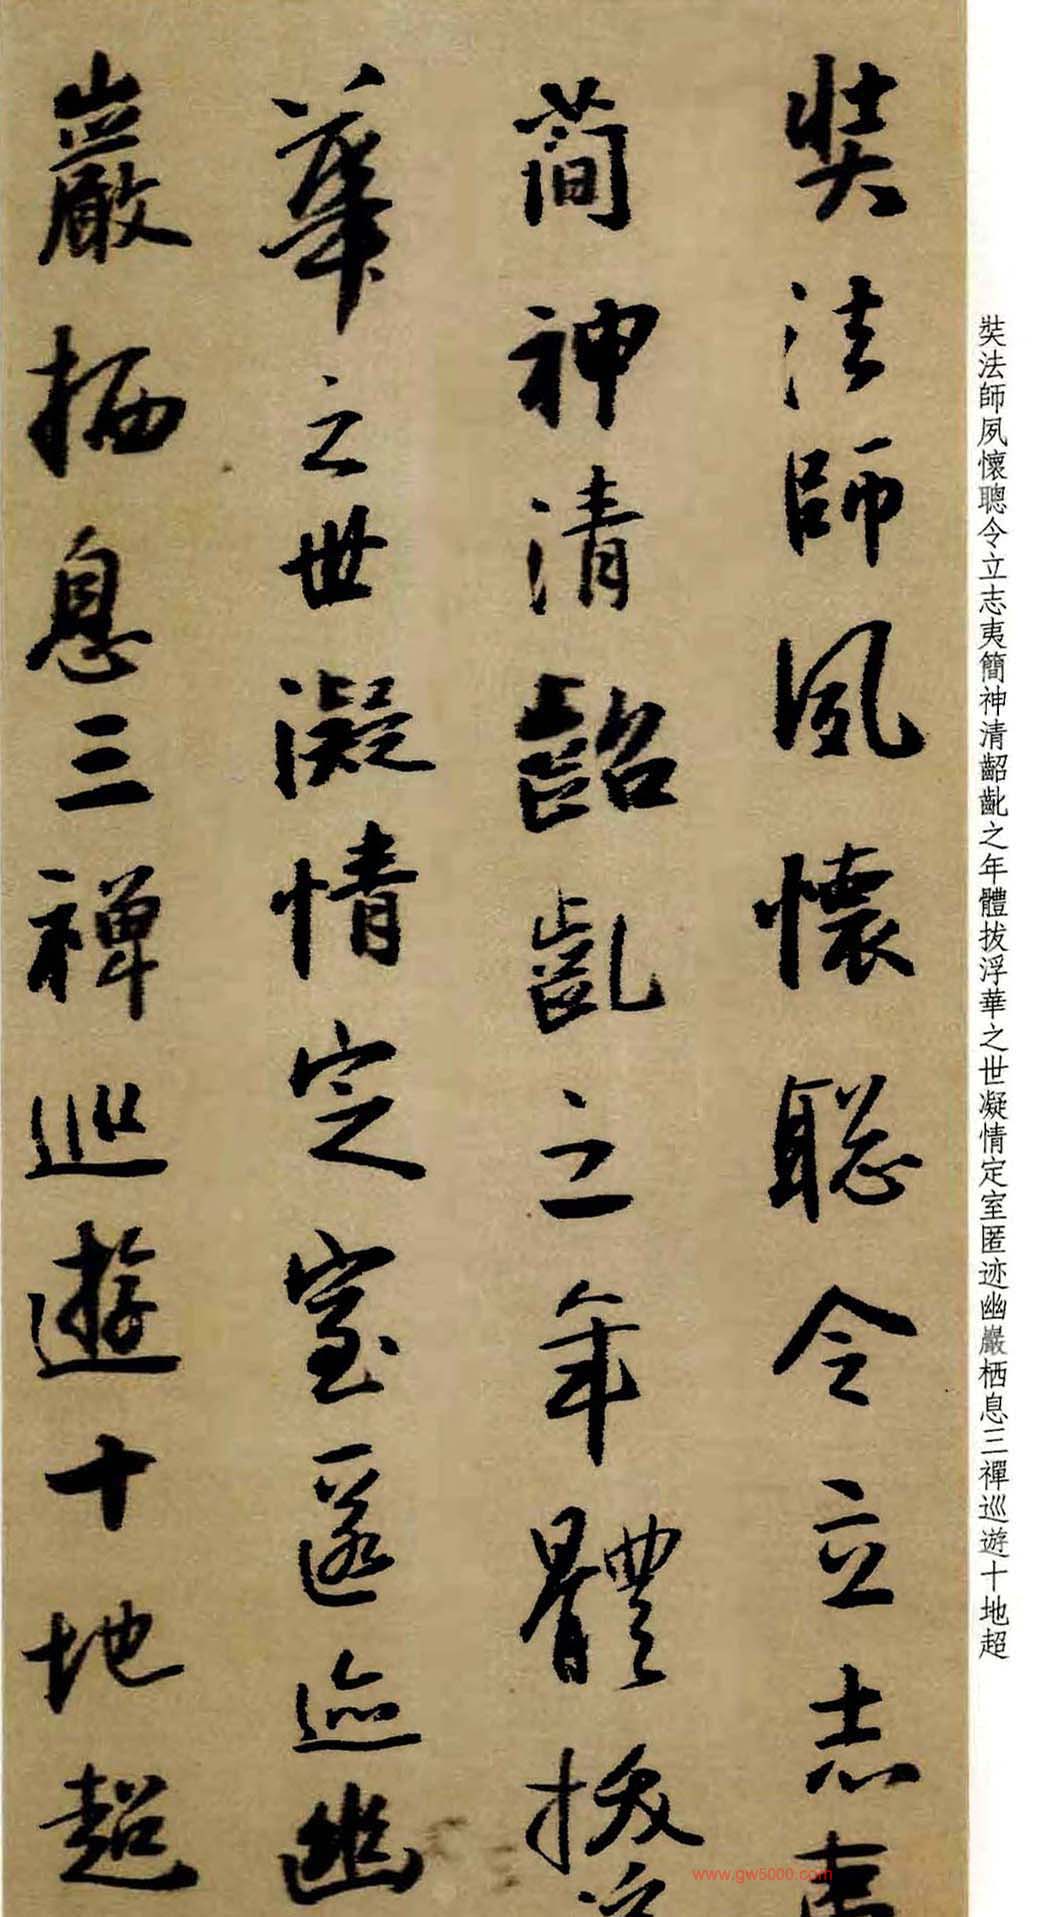 奘法師夙懷聰令立志夷
簡神清齠齔之年體拔浮
華之世凝情定室匿迹幽
巖栖息三禪巡遊十地超
奘法師夙懷聰令立志夷簡神清齠齔之年體拔浮華之世凝情定室匿迹幽巖栖息三禪巡遊十地超
www.gw5000.com